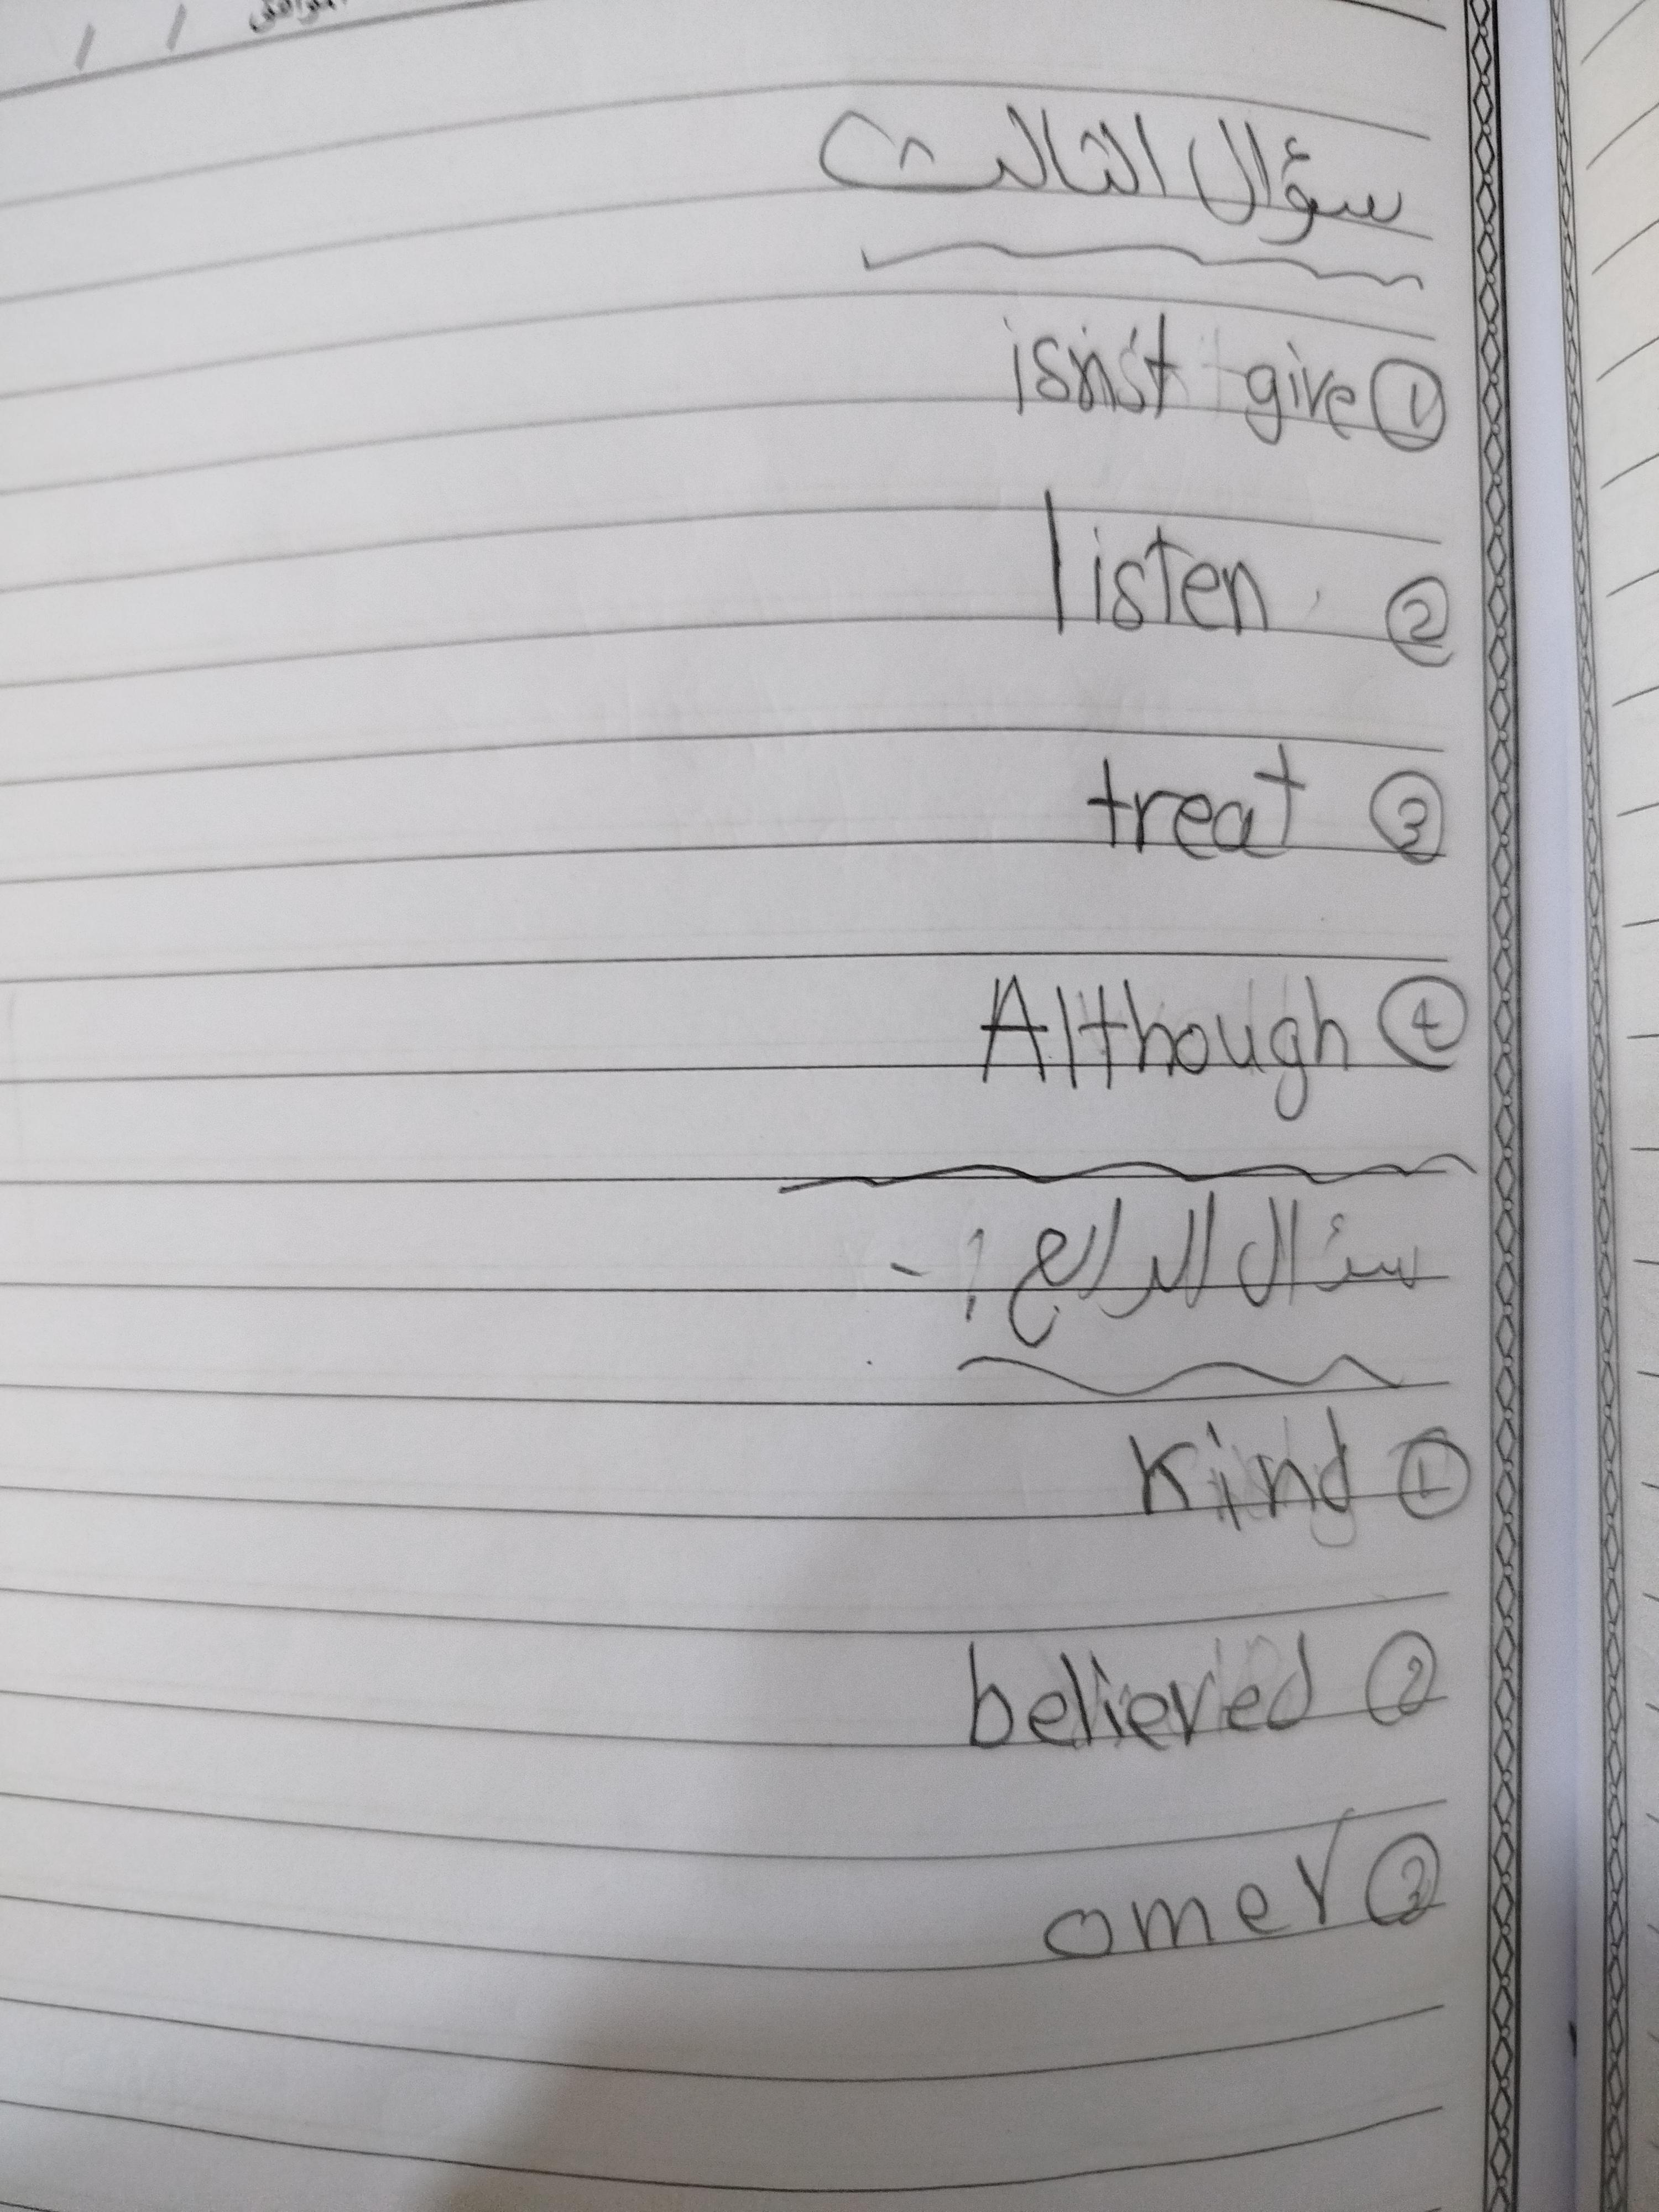 الموافق / /
سؤال الثالث
① isn't give
② listen
③ treat
④ Although
سئال الرابع :-
① Kind
② believed
③ omer